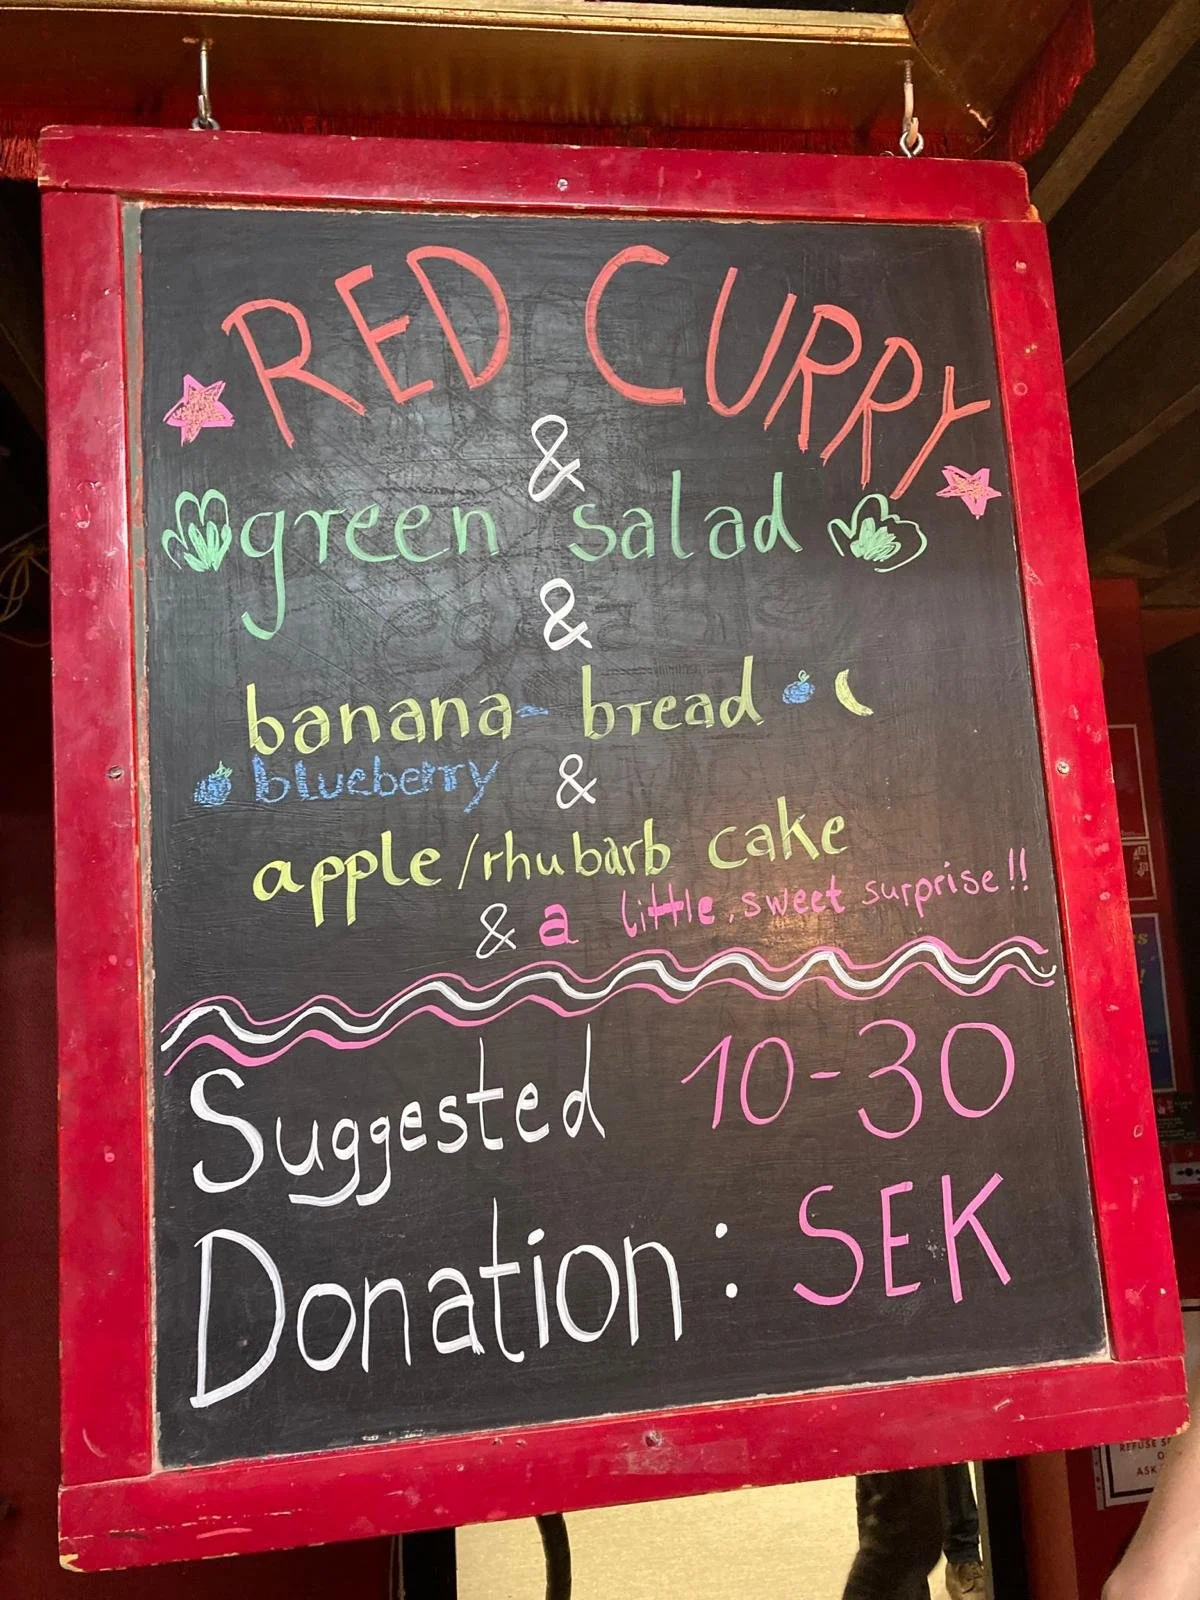 RED CURRY
&
green salad
&
banana- bread
blueberry &
apple/rhubarb cake
& a little sweet surprise!!
Suggested 10-30
Donation: SEK
REFUSE
ASK